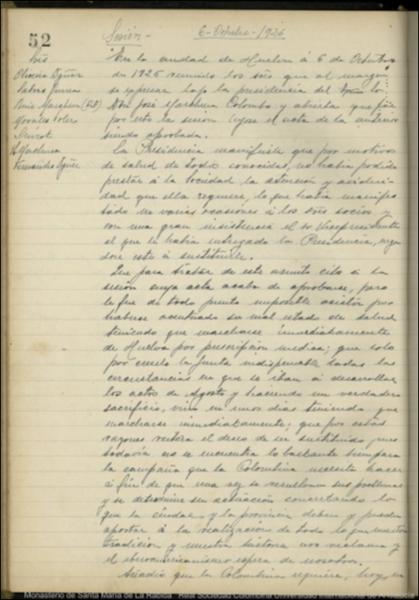 52
Sesión - 6 - Octubre - 1926
En la ciudad de Huelva á 6 de Octubre
de 1926 reunidos los sres que al margen
se expresan bajo la presidencia del
Don José Marchena Colombo y abierta que fué
por este la sesión leyose el acta de la anterior
siendo aprobada.
La Presidencia manifiesta que por motivos
de salud de todos conocidos, no había podido
prestar á la Sociedad la atención y asidui-
dad que ella requiere, lo que había manifes
tado en varias ocasiones á los sres socios y
con una gran insistencia al sr Vicepresidente
al que le había entregado la Presidencia,
dose este á sustituirle.
Que para tratar de este asunto citó á la
sesión cuya acta acaba de aprobarse, pero
le fué de todo punto imposible asistir por
haberse acentuado su mal estado de salud
teniendo que marcharse inmediatamente
de Huelva por prescripción medica; que solo
por creerlo la Junta indispensable dadas las
circunstancias en que se iban á desarrollar
los actos de Agosto y haciendo un verdadero
sacrificio, vino unos dias teniendo que
marcharse inmediatamente; que por estas
razones reitera el deseo de ser sustituido, pues
todavía no se encuentra lo bastante bien para
la campaña que la Colombina necesita hacer
á fin de que una vez se resuelvan sus problemas
y se determine su actuación concretando lo
que la ciudad y la provincia deben y pueden
aportar á la realización de todo lo que nuestra
tradición y nuestra historia nos reclama y
el iberoamericanismo espera de nosotros.
Añadió que la Colombina requiere, hoy,
Sres
Oliveira Dguez
Morales
Marchena
Fernandez Dguez
Monasterio de Santa María de La Rábida - Real Sociedad Colombina